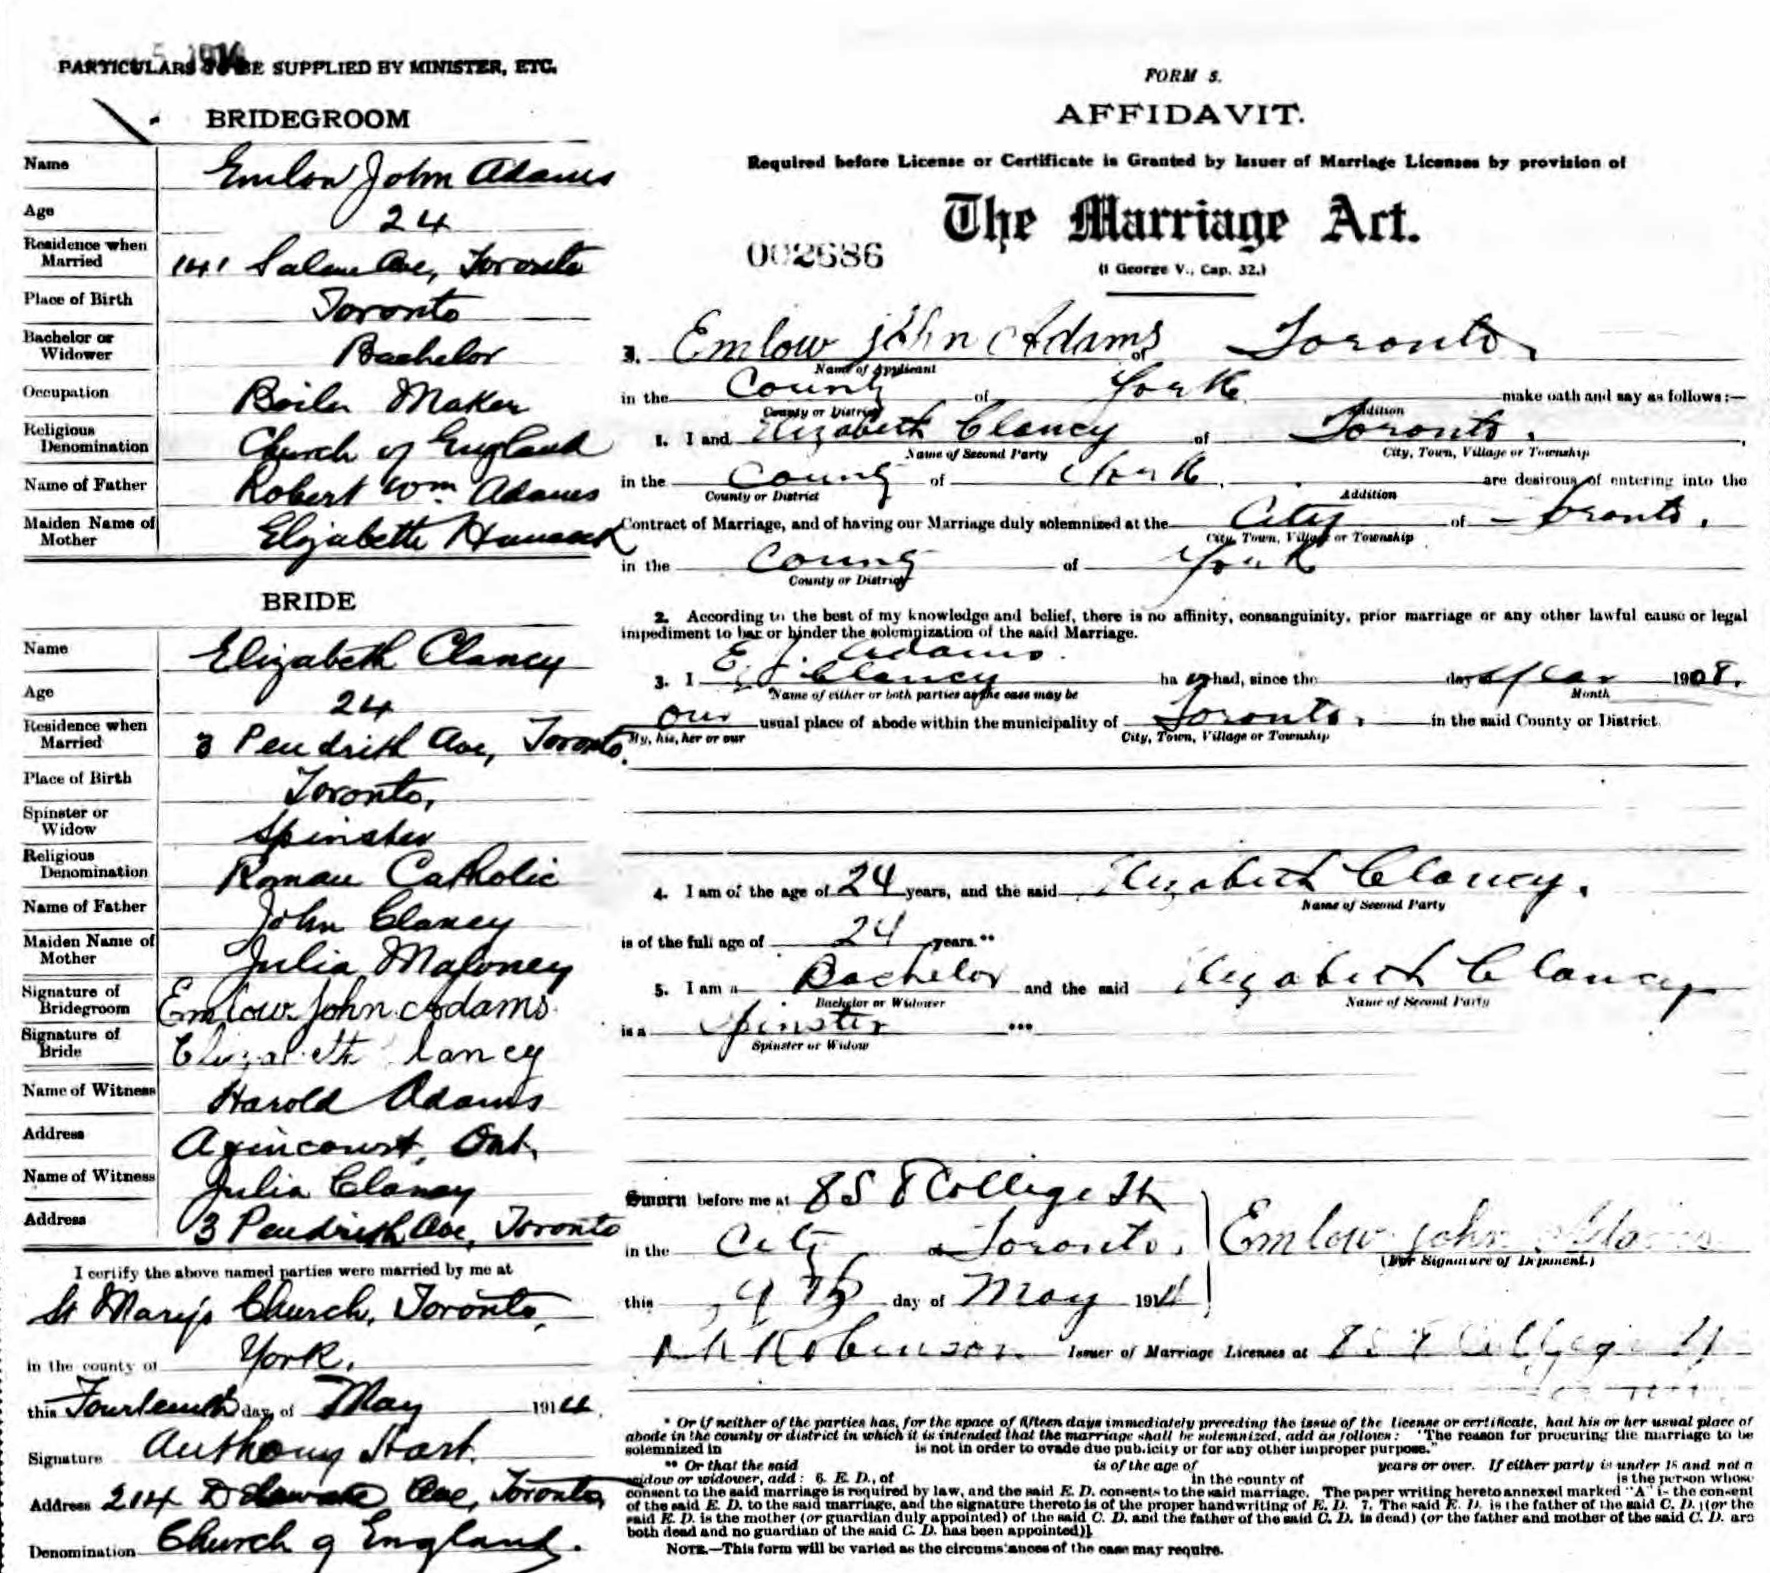 PARTICULARS TO BE SUPPLIED BY MINISTER, ETC.
BRIDEGROOM
Name Emlow John Adams
Age 24
Residence when Married 141 Salem Ave, Toronto
Place of Birth Toronto
Bachelor or Widower Bachelor
Occupation Boiler Maker
Religious Denomination Church of England
Name of Father Robert Wm Adams
Maiden Name of Mother Elizabeth
BRIDE
Name Elizabeth Clancy
Age 24
Residence when Married 3 Pendrith Ave, Toronto.
Place of Birth Toronto,
Spinster or Widow Spinster
Religious Denomination Roman Catholic
Name of Father John Clancy
Maiden Name of Mother Julia Maloney
Signature of Bridegroom Emlow John Adams
Signature of Bride Elizabeth Clancy
Name of Witness Harold Adams
Address Agincourt, Ont.
Name of Witness Julia Clancy
Address 3 Pendrith Ave, Toronto
I certify the above named parties were married by me at
St Mary's Church, Toronto,
in the county of York.
this Fourteenth day of May 1914.
Signature Anthony Hart.
Address 214 Delaware Ave, Toronto,
Denomination Church of England.
FORM 5.
AFFIDAVIT.
Required before License or Certificate is Granted by Issuer of Marriage Licenses by provision of
The Marriage Act.
002686
(1 George V., Cap. 32.)
I. Emlow John Adams of Toronto,
Name of Applicant
in the County of York make oath and say as follows:—
County or District Addition
1. I and Elizabeth Clancy of Toronto.
Name of Second Party City, Town, Village or Township
in the County of York, are desirous of entering into the
County or District Addition
Contract of Marriage, and of having our Marriage duly solemnized at the City of Toronto.
City, Town, Village or Township
in the County of York
County or District
2. According to the best of my knowledge and belief, there is no affinity, consanguinity, prior marriage or any other lawful cause or legal
impediment to bar or hinder the solemnization of the said Marriage.
E. J. Adams.
3. I E. Clancy ha had, since the day Year 1908.
Name of either or both parties as the case may be Month
our usual place of abode within the municipality of Toronto. in the said County or District.
My, his, her or our City, Town, Village or Township
4. I am of the age of 24 years, and the said Elizabeth Clancy.
Name of Second Party
is of the full age of 24 years.**
5. I am a Bachelor and the said Elizabeth Clancy
Bachelor or Widower Name of Second Party
is a Spinster ***
Spinster or Widow
Sworn before me at 858 College St
in the City of Toronto. Emlow John Adams
(For Signature of Deponent.)
this 9th day of May 1914
Robinson Issuer of Marriage Licenses at 858 College St
* Or if neither of the parties has, for the space of fifteen days immediately preceding the issue of the license or certificate, had his or her usual place of
abode in the county or district in which it is intended that the marriage shall be solemnized, add as follows: "The reason for procuring the marriage to be
solemnized in is not in order to evade due publicity or for any other improper purpose."
** Or that the said is of the age of years or over. If either party is under 18 and not a
widow or widower, add: 6. E. D., of in the county of is the person whose
consent to the said marriage is required by law, and the said E. D. consents to the said marriage. The paper writing hereto annexed marked "A" is the consent
of the said E. D. to the said marriage, and the signature thereto is of the proper handwriting of E. D. 7. The said E. D. is the father of the said C. D. (or the
said E. D. is the mother (or guardian duly appointed) of the said C. D. and the father of the said C. D. is dead) (or the father and mother of the said C. D. are
both dead and no guardian of the said C. D. has been appointed)].
NOTE.—This form will be varied as the circumstances of the case may require.